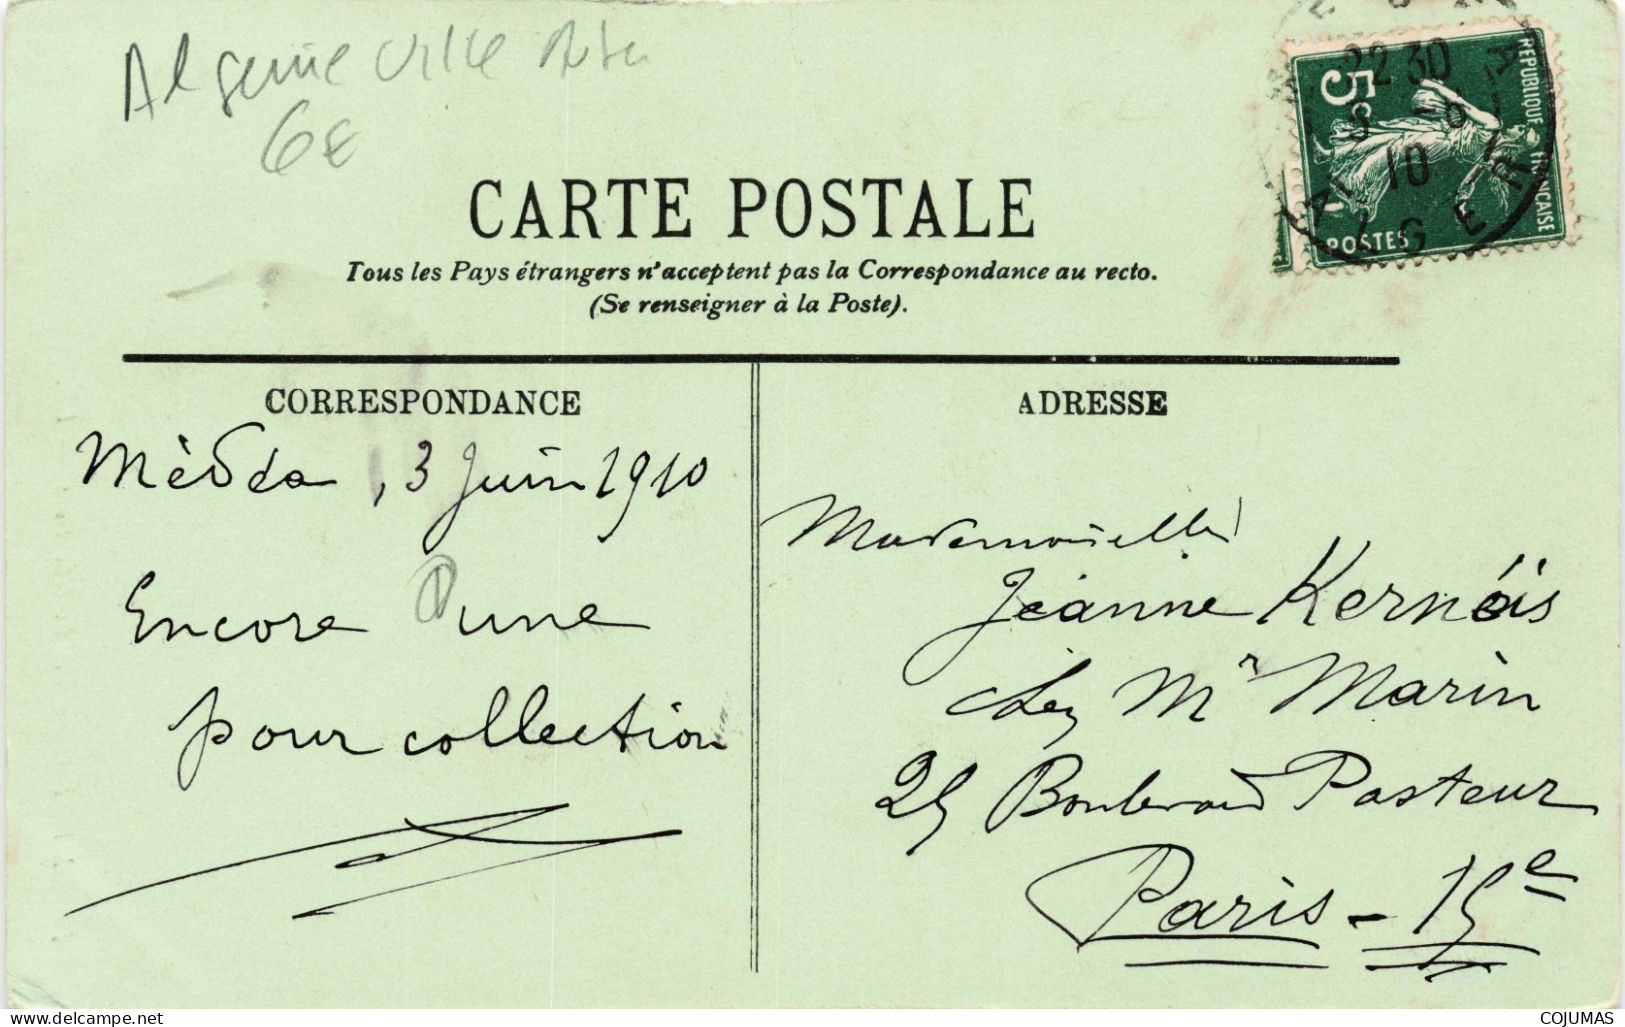 Algerie ville
6€
22 30
5c
-6
10
REPUBLIQUE FRANCAISE
POSTES
ALGER
CARTE POSTALE
Tous les Pays étrangers n'acceptent pas la Correspondance au recto.
(Se renseigner à la Poste).
CORRESPONDANCE
Mèdéa, 3 Juin 1910
Encore une
pour collection
ADRESSE
Mademoiselle
Jeanne Kernéis
chez Mr Marin
25 Boulevard Pasteur
Paris - 15e
www.delcampe.net
COJUMAS